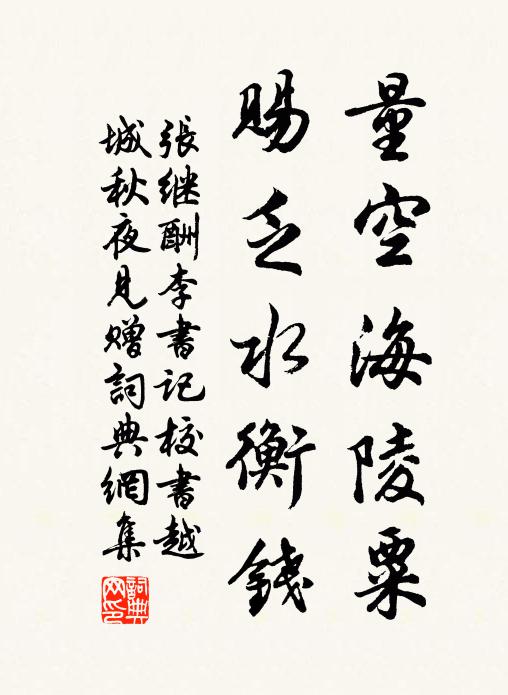 量空海陵粟
賜乏水衡錢
張継酬李書记校書越
城秋夜見贈詞典網集
詞典网印